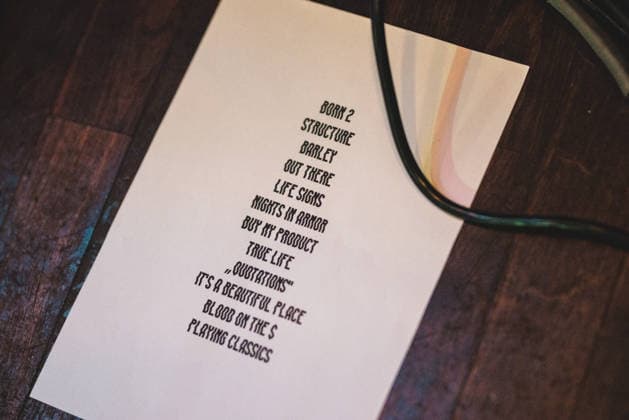 BORN 2
STRUCTURE
BARLEY
OUT THERE
LIFE SIGNS
NIGHTS IN ARMOR
BUY MY PRODUCT
TRUE LIFE
„QUOTATIONS“
IT'S A BEAUTIFUL PLACE
BLOOD ON THE $
PLAYING CLASSICS